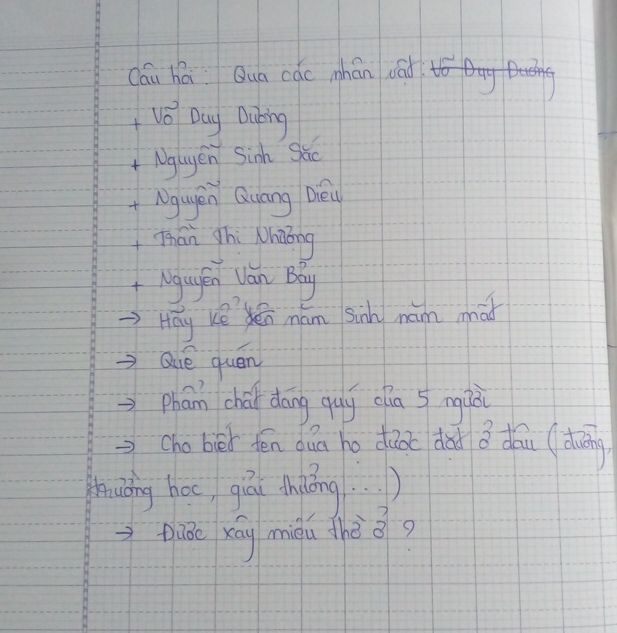 Câu hỏi: Qua các nhân vật: Võ Duy Dương
+ Võ Duy Dương
+ Nguyễn Sinh Sắc
+ Nguyễn Quang Diêu
+ Trần Thị Nhượng
+ Nguyễn Văn Bảy
→ Hãy kể tên năm sinh năm mất
→ Quê quán
→ Phẩm chất đáng quý của 5 người
→ Cho biết tên của họ được đặt ở đâu (đường,
trường học, giải thưởng, ...)
→ Được xây miếu thờ ở ?